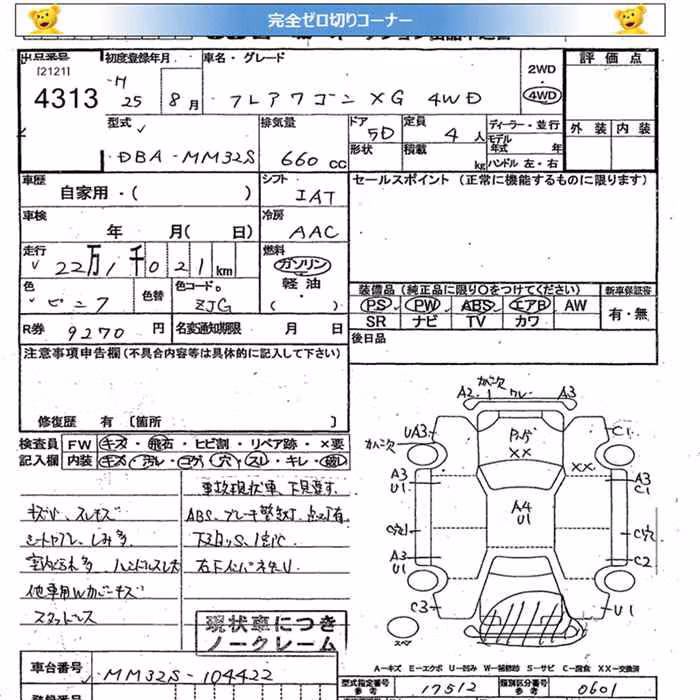 完全ゼロ切りコーナー
出品番号
[2121]
4313
初度登録年月
H
25 8月
車名・グレード
フレアワゴン XG 4WD
2WD
4WD
評価点
外装 内装
型式
DBA-MM32S
排気量
660 CC
ドア 5D
形状
定員 4人
積載 kg
ディーラー・並行
モデル年式 年
ハンドル 左・右
車歴
自家用・( )
シフト
IAT
セールスポイント (正常に機能するものに限ります)
車検
年 月( 日)
冷房
AAC
走行
22万1千021km
燃料
ガソリン
軽油・
( )
色
ピンク
色替
色コードNo
ZJG
装備品 (純正品に限り○をつけてください)
新車保証書
PS PW ABS エアB AW
SR ナビ TV カワ
有・無
R券
9270円
名変通知期限 月 日
後日品
注意事項申告欄 (不具合内容等は具体的に記入して下さい)
修復歴 有 〔箇所 〕
検査員記入欄
FW キズ・飛石・ヒビ割・リペア跡・×要
内装 キズ・汚レ・コゲ・穴・スレ・キレ・破レ
事故現状車、下見要す。
キズW、スレキズ
ABS、ブレーキ警告灯、点灯有
シートヤブレ、シミ多
下回りS、1部C
室内汚れ多 ハンドルスレ大
他車用Wカバーキズ
スタッドレス
現状車につき
ノークレーム
車台番号
MM32S-104422
登録番号
型式指定番号
参考
17512
類別区分番号
参考
0601
A2 カハ二次 ワレ A3
UA3
カハ二次
P.パゲ
XX
XX
C1
A3
U1
A4
U1
A3
C1
C穴
C穴
A3
U1
C2
C3
U1
スペア
A-キズ E-エクボ U-凹み W-補修跡 S-サビ C-腐食 XX-交換済